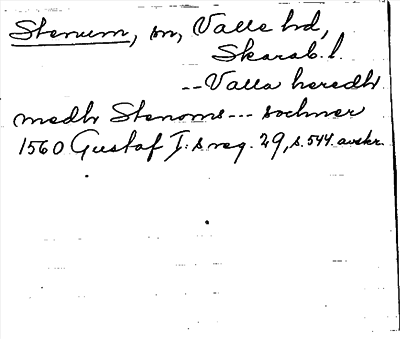 Stenum, sn, Valle hd,
Skarab. l.
-- Vallaheredh
medh Stenoms --- sochner
1560 Gustaf I:s reg. 29, s. 544. avskr.